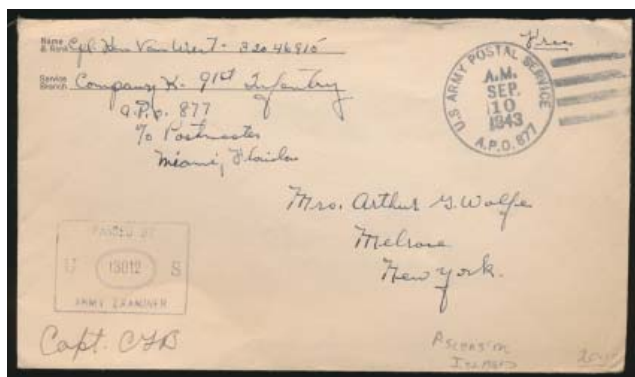 Name & Rank Cpl. Ken Van Wert - 32046915
Service Branch Company K - 91st Infantry
A.P.O. 877
c/o Postmaster
Miami, Florida
Free
U.S. ARMY POSTAL SERVICE
A.M.
SEP.
10
1943
A.P.O. 877
Mrs. Arthur G. Wolfe
Melrose
New York.
PASSED BY
U 13012 S
ARMY EXAMINER
Capt.
ASCENSION
ISLAND